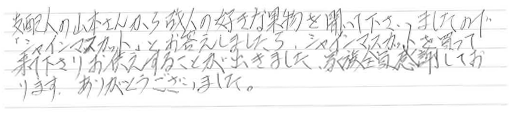 支配人の山本さんから故人の好きな果物を聞いて下さいましたので
「シャインマスカット」とお答えしましたら、シャインマスカットを買って
来て下さりお供えすることが出きました。家族全員感謝してお
ります。ありがとうございました。